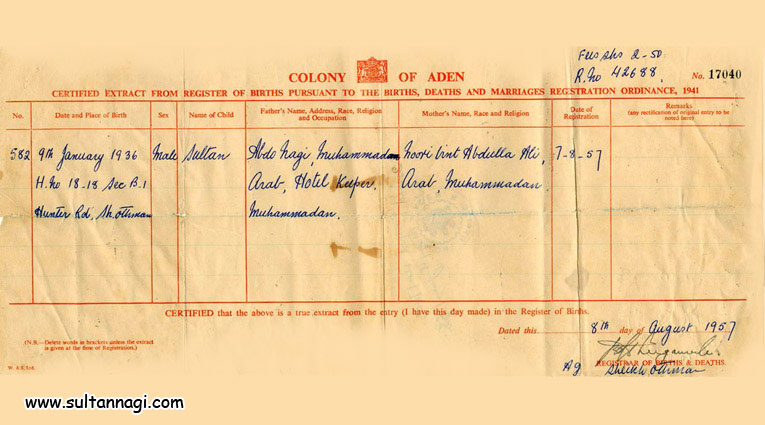 Fees shs 2-50
R.No 42688.
COLONY OF ADEN
No. 17040
CERTIFIED EXTRACT FROM REGISTER OF BIRTHS PURSUANT TO THE BIRTHS, DEATHS AND MARRIAGES REGISTRATION ORDINANCE, 1941
No.
Date and Place of Birth
Sex
Name of Child
Father's Name, Address, Race, Religion
and Occupation
Mother's Name, Race and Religion
Date of
Registration
Remarks
(any rectification of original entry to be
noted here)
582 9th January 1936 Male Sultan Abdo Nagi, Muhammadan Noori bint Abdulla Ali, 7-8-57
H.No 18-18 Sec B.1 Arab, Hotel Keeper. Arab, Muhammadan.
Hunter Rd, Sh.Othman Muhammadan.
CERTIFIED that the above is a true extract from the entry (I have this day made) in the Register of Births.
Dated this 8th day of August 1957
(N.B.—Delete words in brackets unless the extract
is given at the time of Registration.)
REGISTRAR OF BIRTHS & DEATHS.
Ag Sheikh Othman
www.sultannagi.com